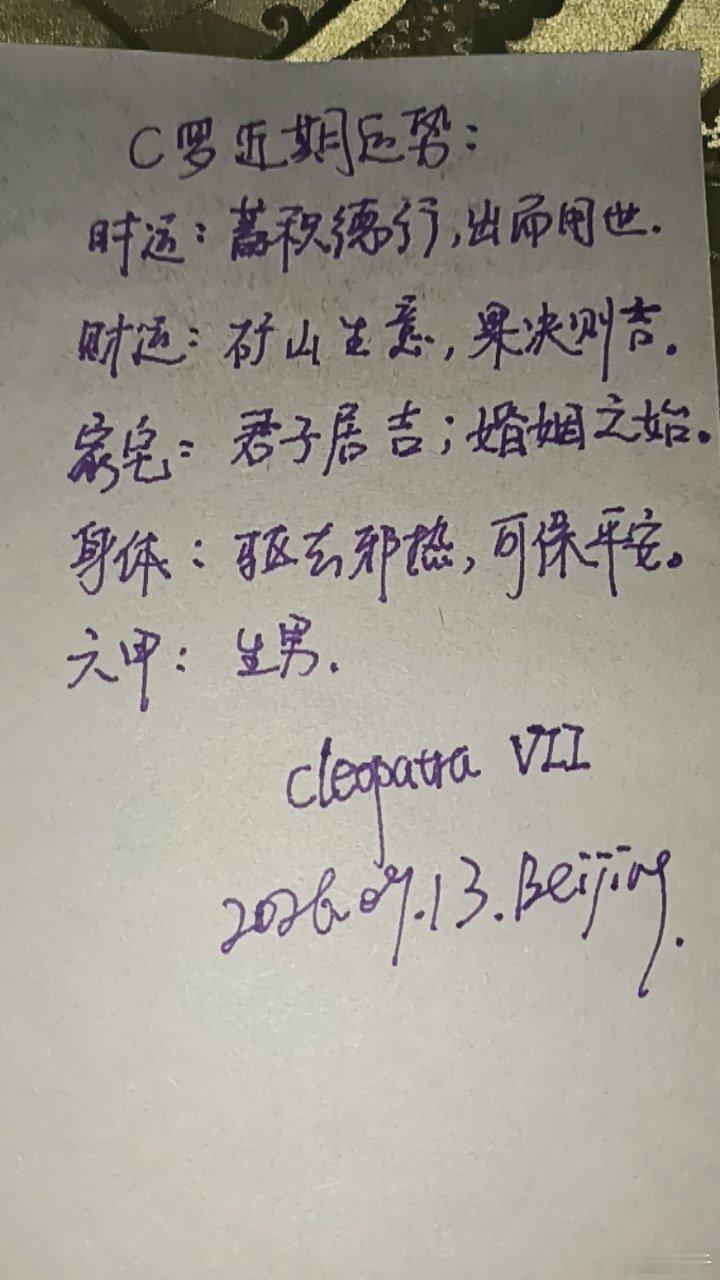 C罗近期运势：
时运：蓄积德行，出而用世.
财运：矿山生意，果决则吉。
家宅：君子居吉；婚姻之始。
身体：驱去邪热，可保平安。
六甲：生男.
Cleopatra VII
2026.07.13.Beijing.